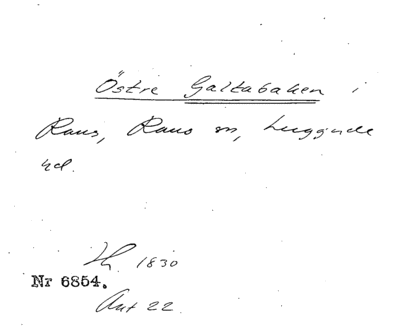 Östre Galtabacken i
Raus, Raus sn, Luggude
hd.
1830
Nr 6854.
Ant 22